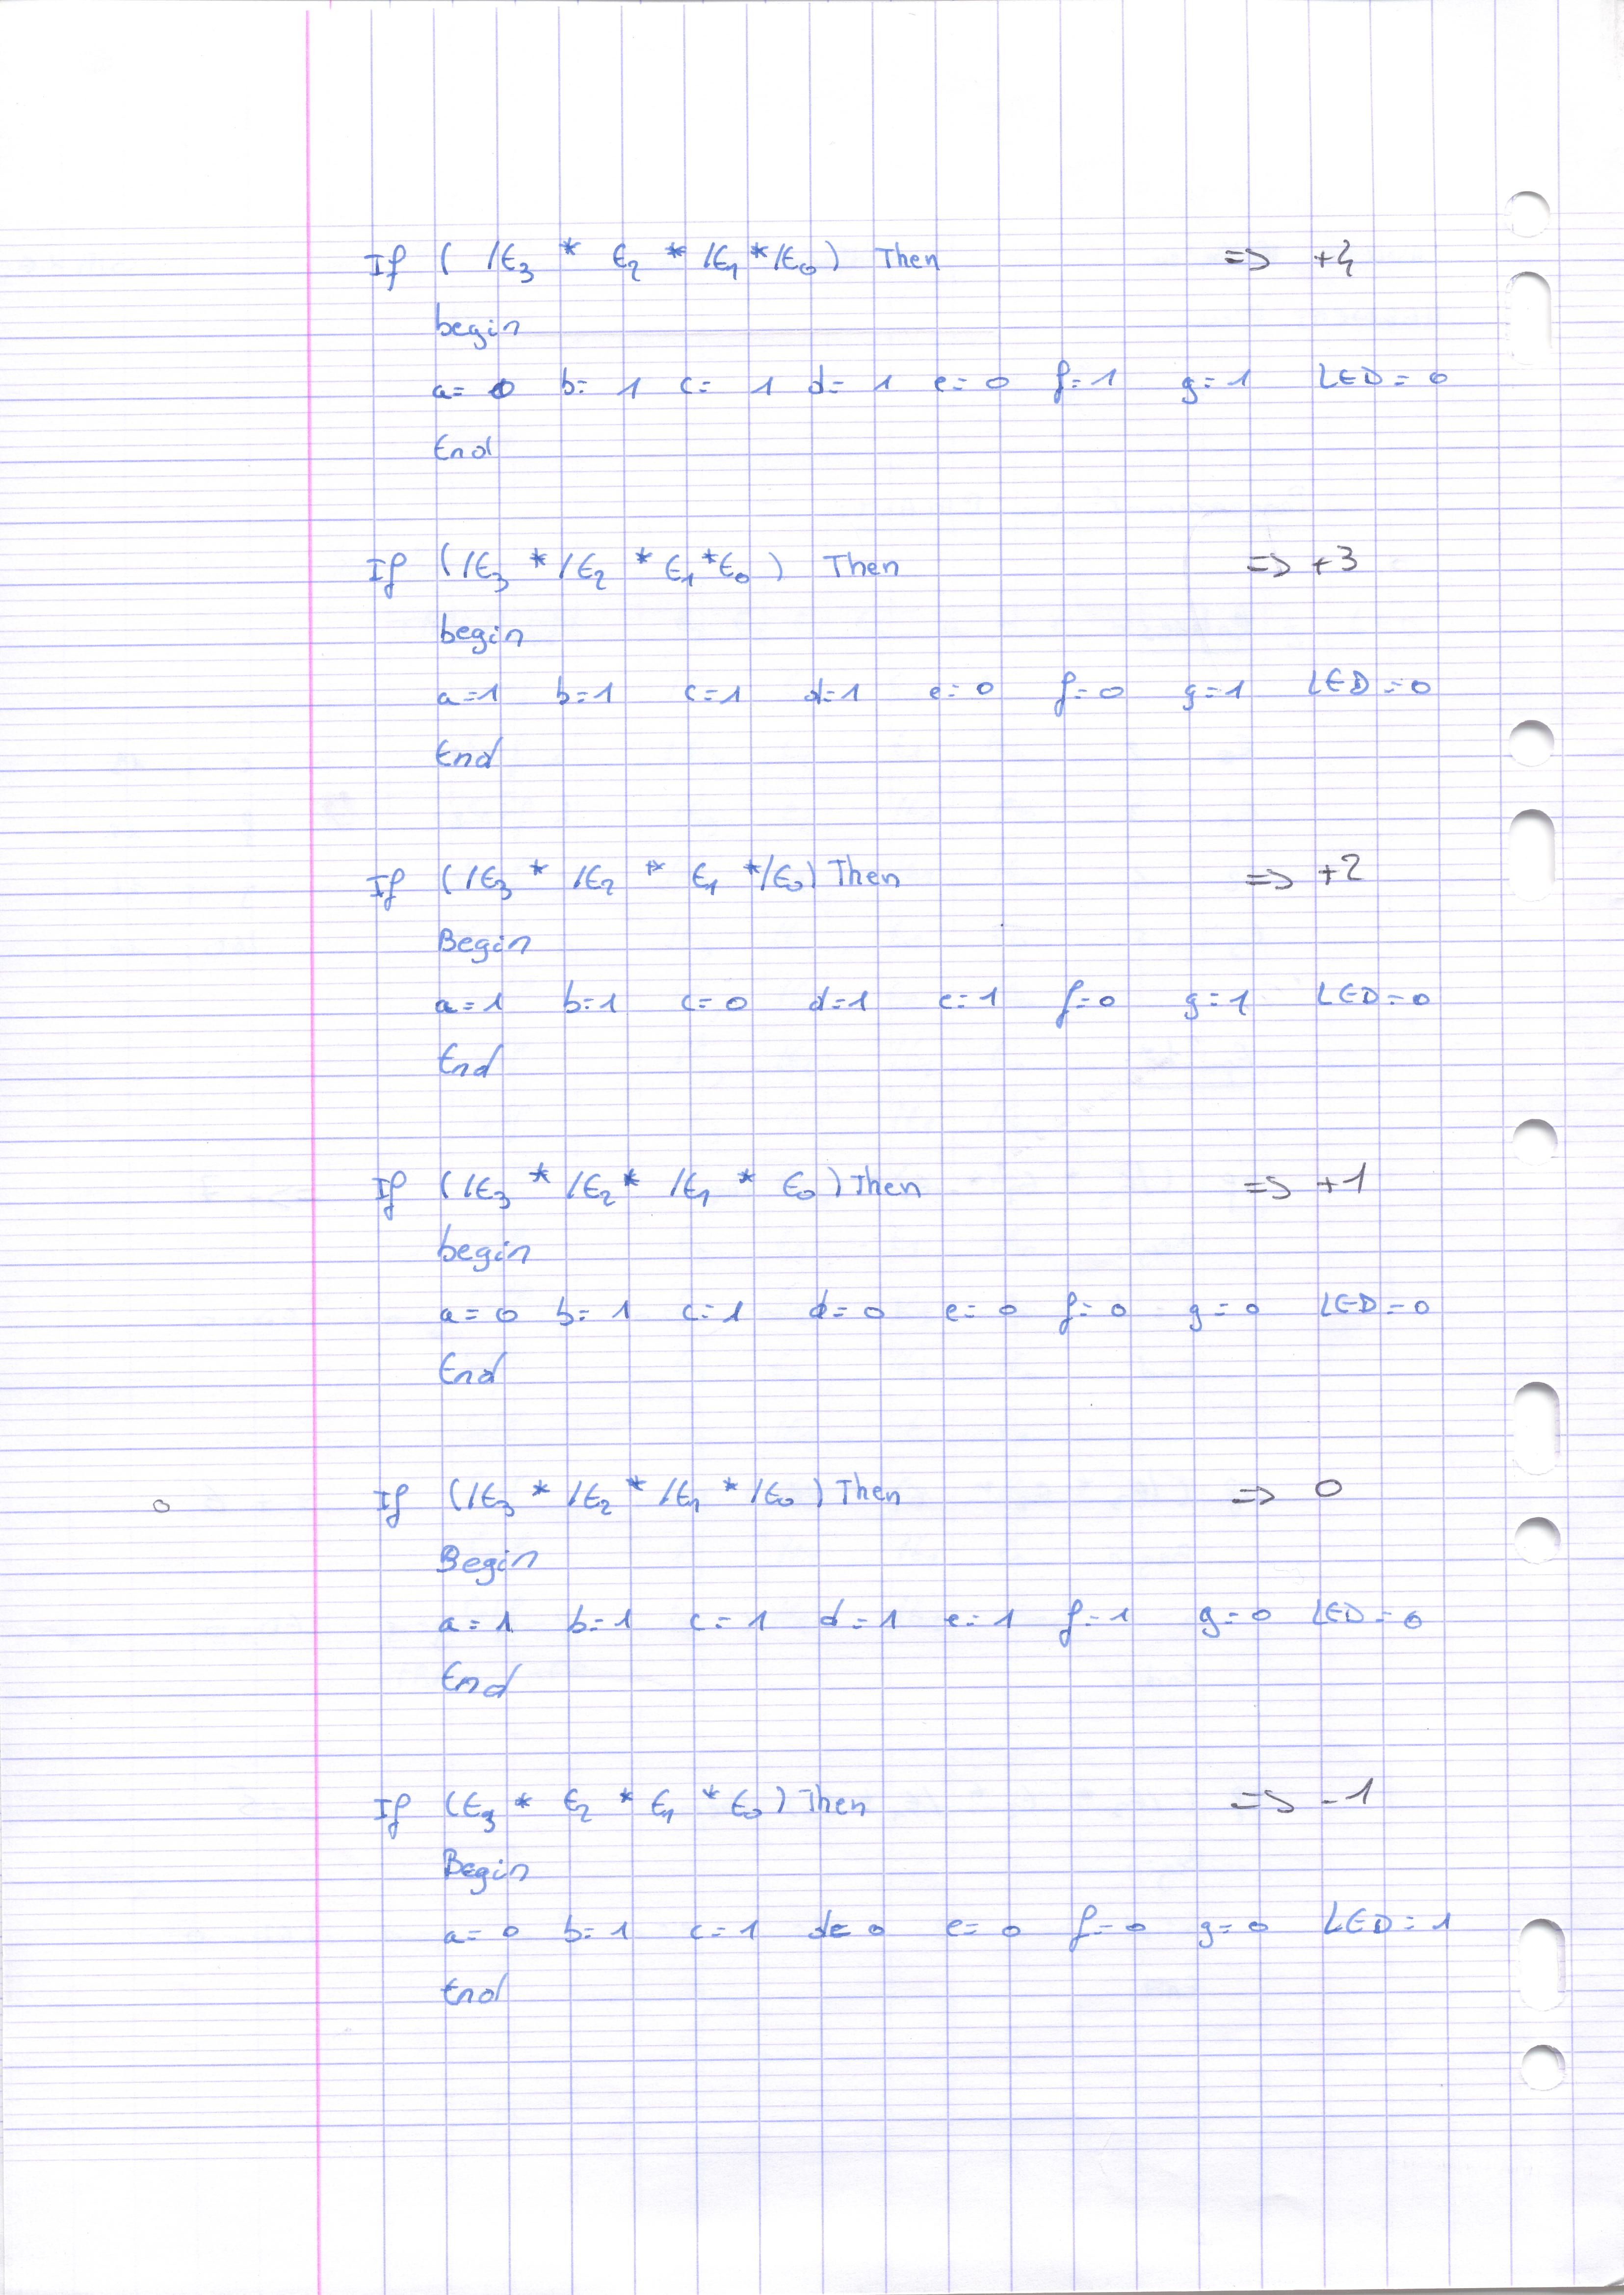 If ( /E₃ * E₂ * /E₁ * /E₀ ) Then => +4
begin
a= 0 b= 1 c= 1 d= 1 e= 0 f=1 g=1 LED= 0
End
If ( /E₃ * /E₂ * E₁ * E₀ ) Then => +3
begin
a=1 b=1 c=1 d=1 e=0 f=0 g=1 LED=0
End
If ( /E₃ * /E₂ * E₁ * /E₀ ) Then => +2
Begin
a=1 b=1 c=0 d=1 e=1 f=0 g=1 LED=0
End
If ( /E₃ * /E₂ * /E₁ * E₀ ) Then => +1
begin
a=0 b=1 c=1 d=0 e=0 f=0 g=0 LED=0
End
If ( /E₃ * /E₂ * /E₁ * /E₀ ) Then => 0
Begin
a=1 b=1 c=1 d=1 e=1 f=1 g=0 LED=0
End
If ( E₃ * E₂ * E₁ * E₀ ) Then => -1
Begin
a=0 b=1 c=1 d=0 e=0 f=0 g=0 LED=1
End